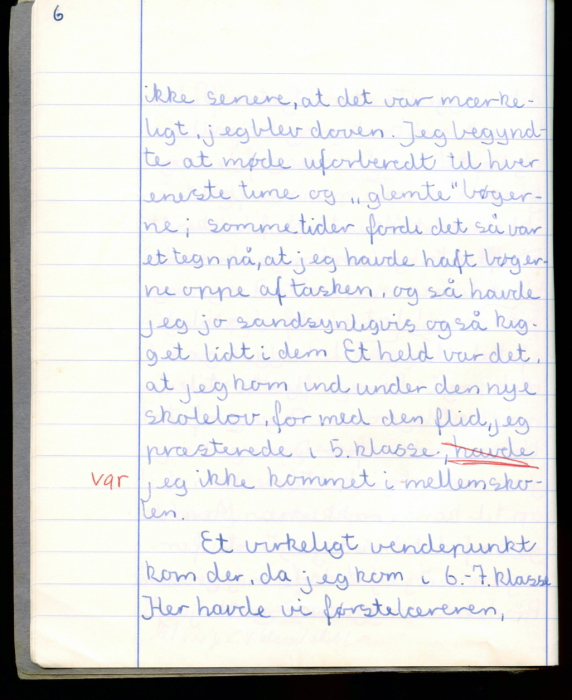 6
ikke senere, at det var mærke-
ligt, jeg blev doven. Jeg begynd-
te at møde uforberedt til hver
eneste time og „glemte" bøger-
ne; sommetider fordi det så var
et tegn på, at jeg havde haft bøger-
ne oppe af tasken, og så havde
jeg jo sandsynligvis også kig-
get lidt i dem Et held var det,
at jeg kom ind under den nye
skolelov, for med den flid, jeg
præsterede i 5. klasse, havde
var jeg ikke kommet i mellemsko-
len.
Et virkeligt vendepunkt
kom der, da jeg kom i 6.-7. klasse
Her havde vi førstelæreren,